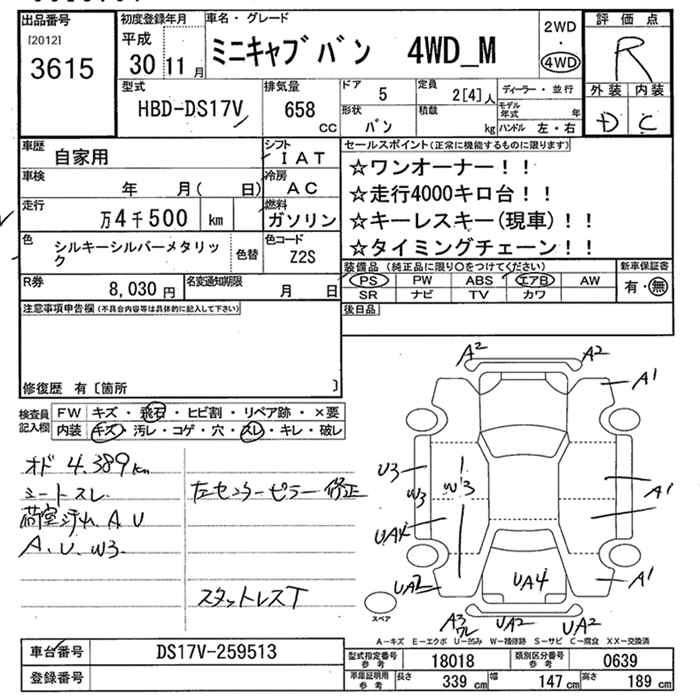 出品番号
[2012]
3615
初度登録年月
平成
30 11月
車名・グレード
ミニキャブバン 4WD_M
2WD
・
4WD
評価点
R
外装 内装
D C
型式
HBD-DS17V
排気量
658
cc
ドア
5
定員
2[4]人
ディーラー・並行
形状
バン
積載
kg
モデル年式 年
ハンドル 左・右
車歴
自家用
シフト
IAT
車検
年 月( 日)
冷房
AC
走行
万4千500 km
燃料
ガソリン
色
シルキーシルバーメタリック
色替
色コード
Z2S
R券
8,030円
名変通知期限
月 日
セールスポイント(正常に機能するものに限ります)
☆ワンオーナー!!
☆走行4000キロ台!!
☆キーレスキー(現車)!!
☆タイミングチェーン!!
装備品(純正品に限り○をつけてください)
PS PW ABS エアB AW
SR ナビ TV カワ
新車保証書
有・無
後日品
注意事項申告欄(不具合内容等は具体的に記入して下さい)
修復歴 有〔箇所 〕
検査員記入欄
FW キズ・飛石・ヒビ割・リペア跡・×要
内装 キズ・汚レ・コゲ・穴・スレ・キレ・破レ
オド 4.389km
シートスレ
荷室汚れ、A、U
A、U、W3.
左センターピラー修正
スタットレスT
A2 A2
A1
U3
W3
W3
A1
UA4
UA2
UA4
A1
A3
ワレ
UA2
UA2
スペア
A-キズ E-エクボ U-凹み W-補修跡 S-サビ C-腐食 XX-交換済
車台番号
DS17V-259513
登録番号
型式指定番号
参考
18018
類別区分番号
参考
0639
車庫証明用
参考
長さ 339cm 幅 147cm 高さ 189cm